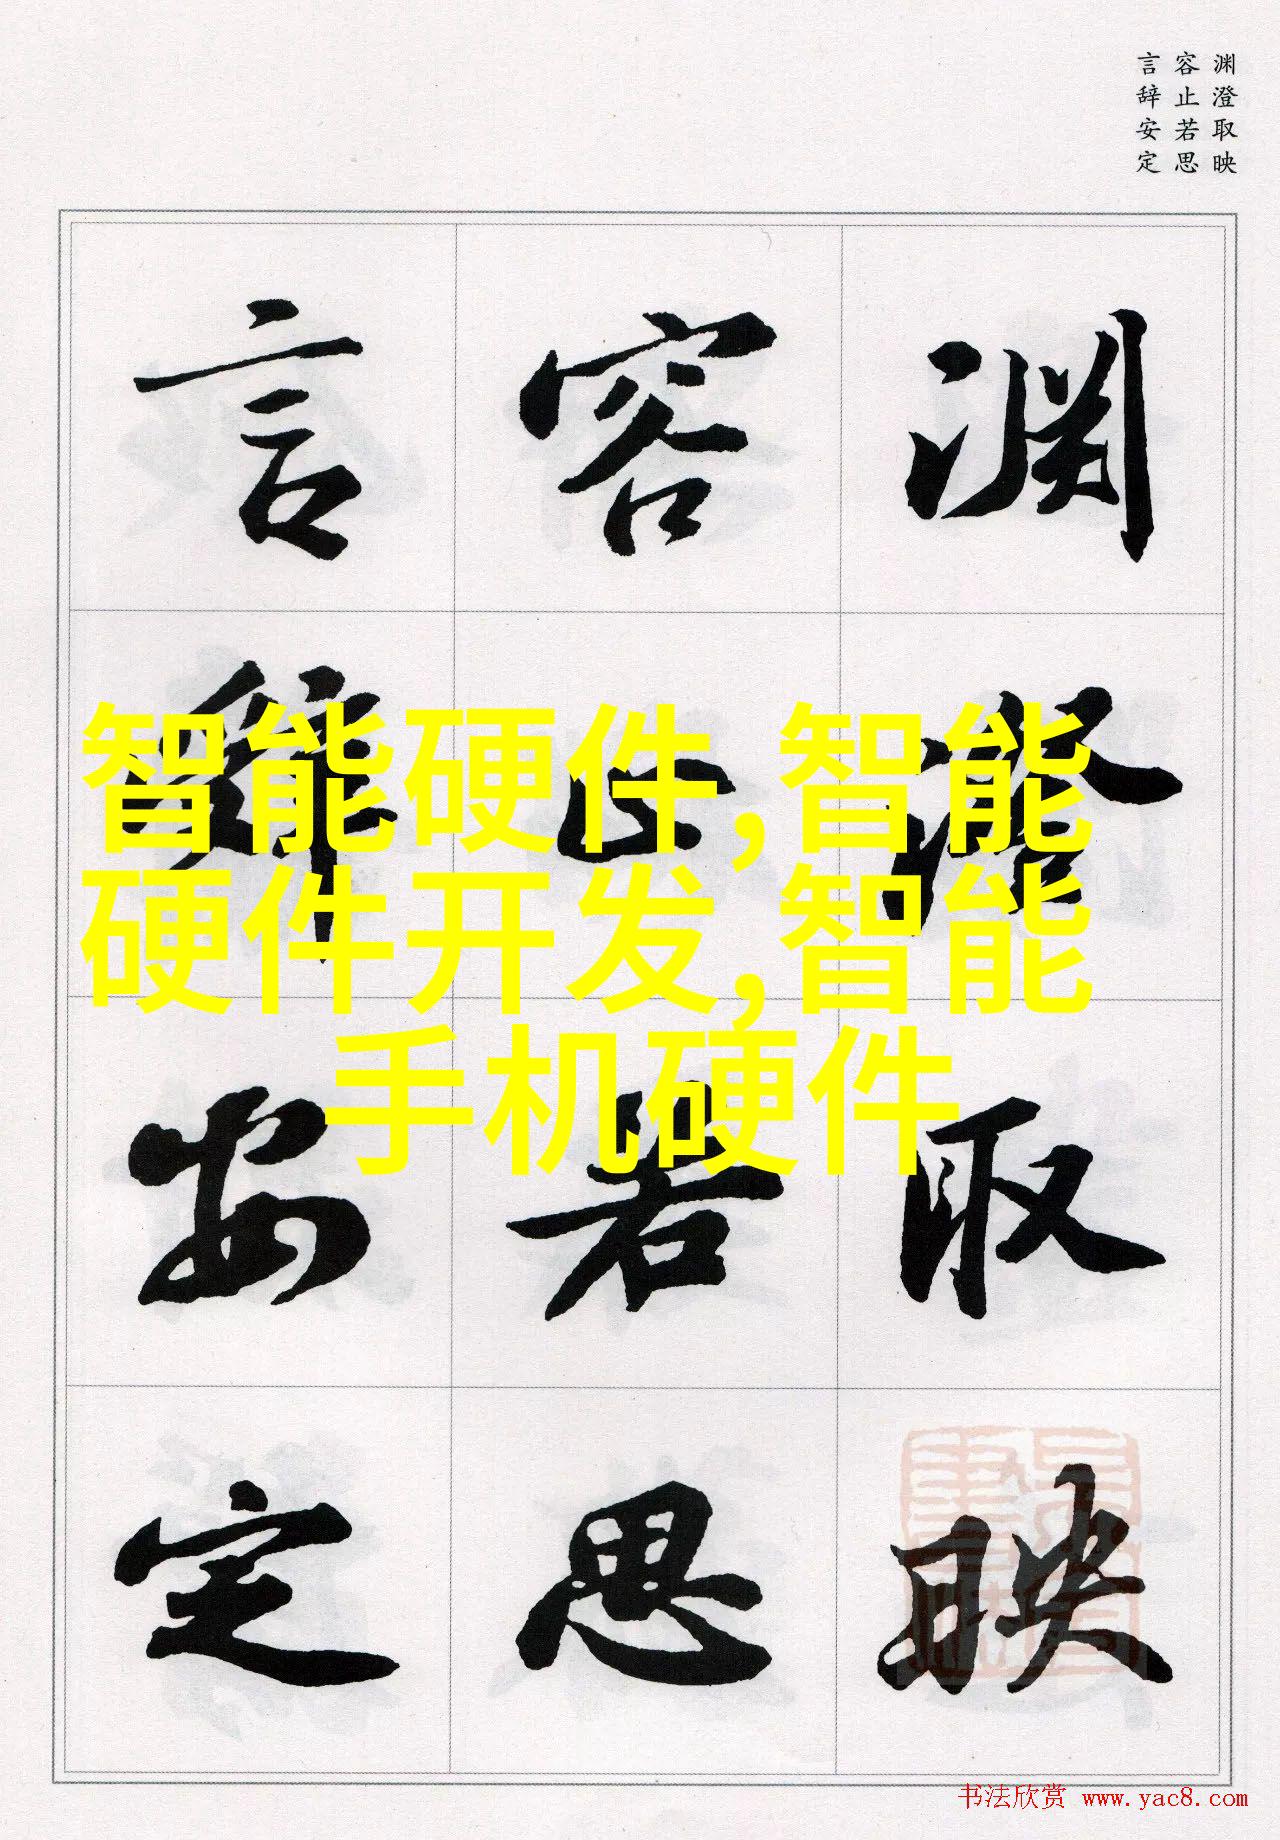 渊澄取映
容止若思
言辞安定
渊澄取映
容止若思
言辞安定
智能硬件,智能
硬件开发,智能
手机硬件
书法欣赏 www.yac8.com